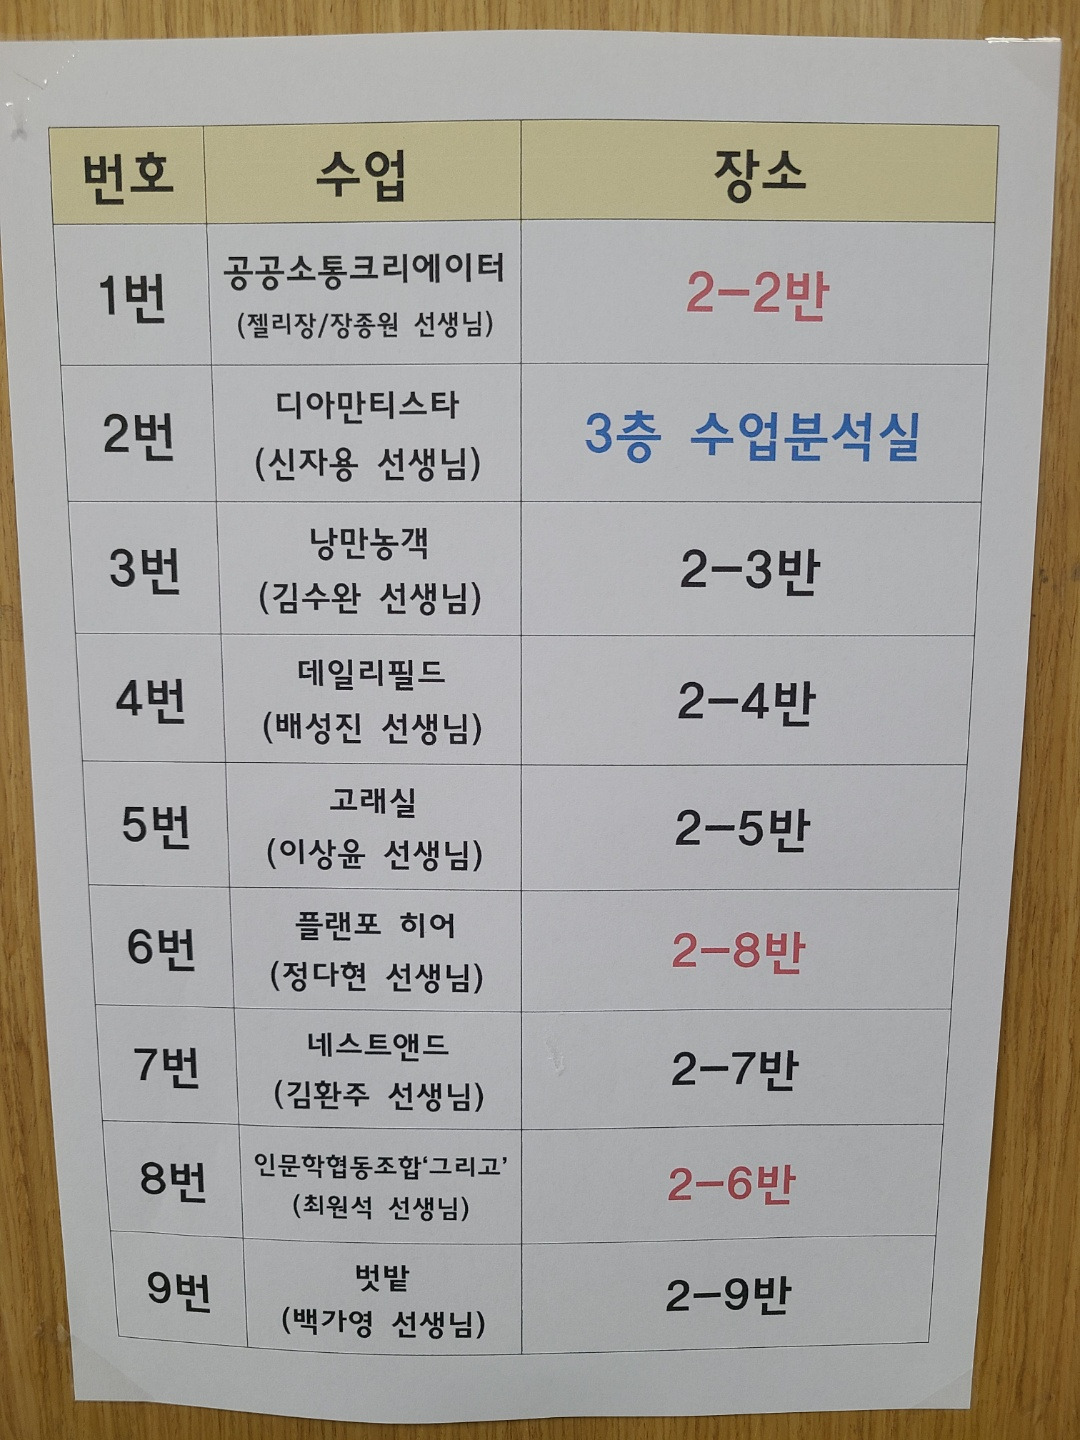 번호 수업 장소
1번 공공소통크리에이터 2-2반
(젤리장/장종원 선생님)
2번 디아만티스타 3층 수업분석실
(신자용 선생님)
3번 낭만농객 2-3반
(김수완 선생님)
4번 데일리필드 2-4반
(배성진 선생님)
5번 고래실 2-5반
(이상윤 선생님)
6번 플랜포 히어 2-8반
(정다현 선생님)
7번 네스트앤드 2-7반
(김환주 선생님)
8번 인문학협동조합‘그리고’ 2-6반
(최원석 선생님)
9번 벗밭 2-9반
(백가영 선생님)